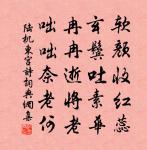 软颜收红蕊
玄鬓吐素华
冉冉逝将老
咄咄奈老何
陆机东宫诗词典网集